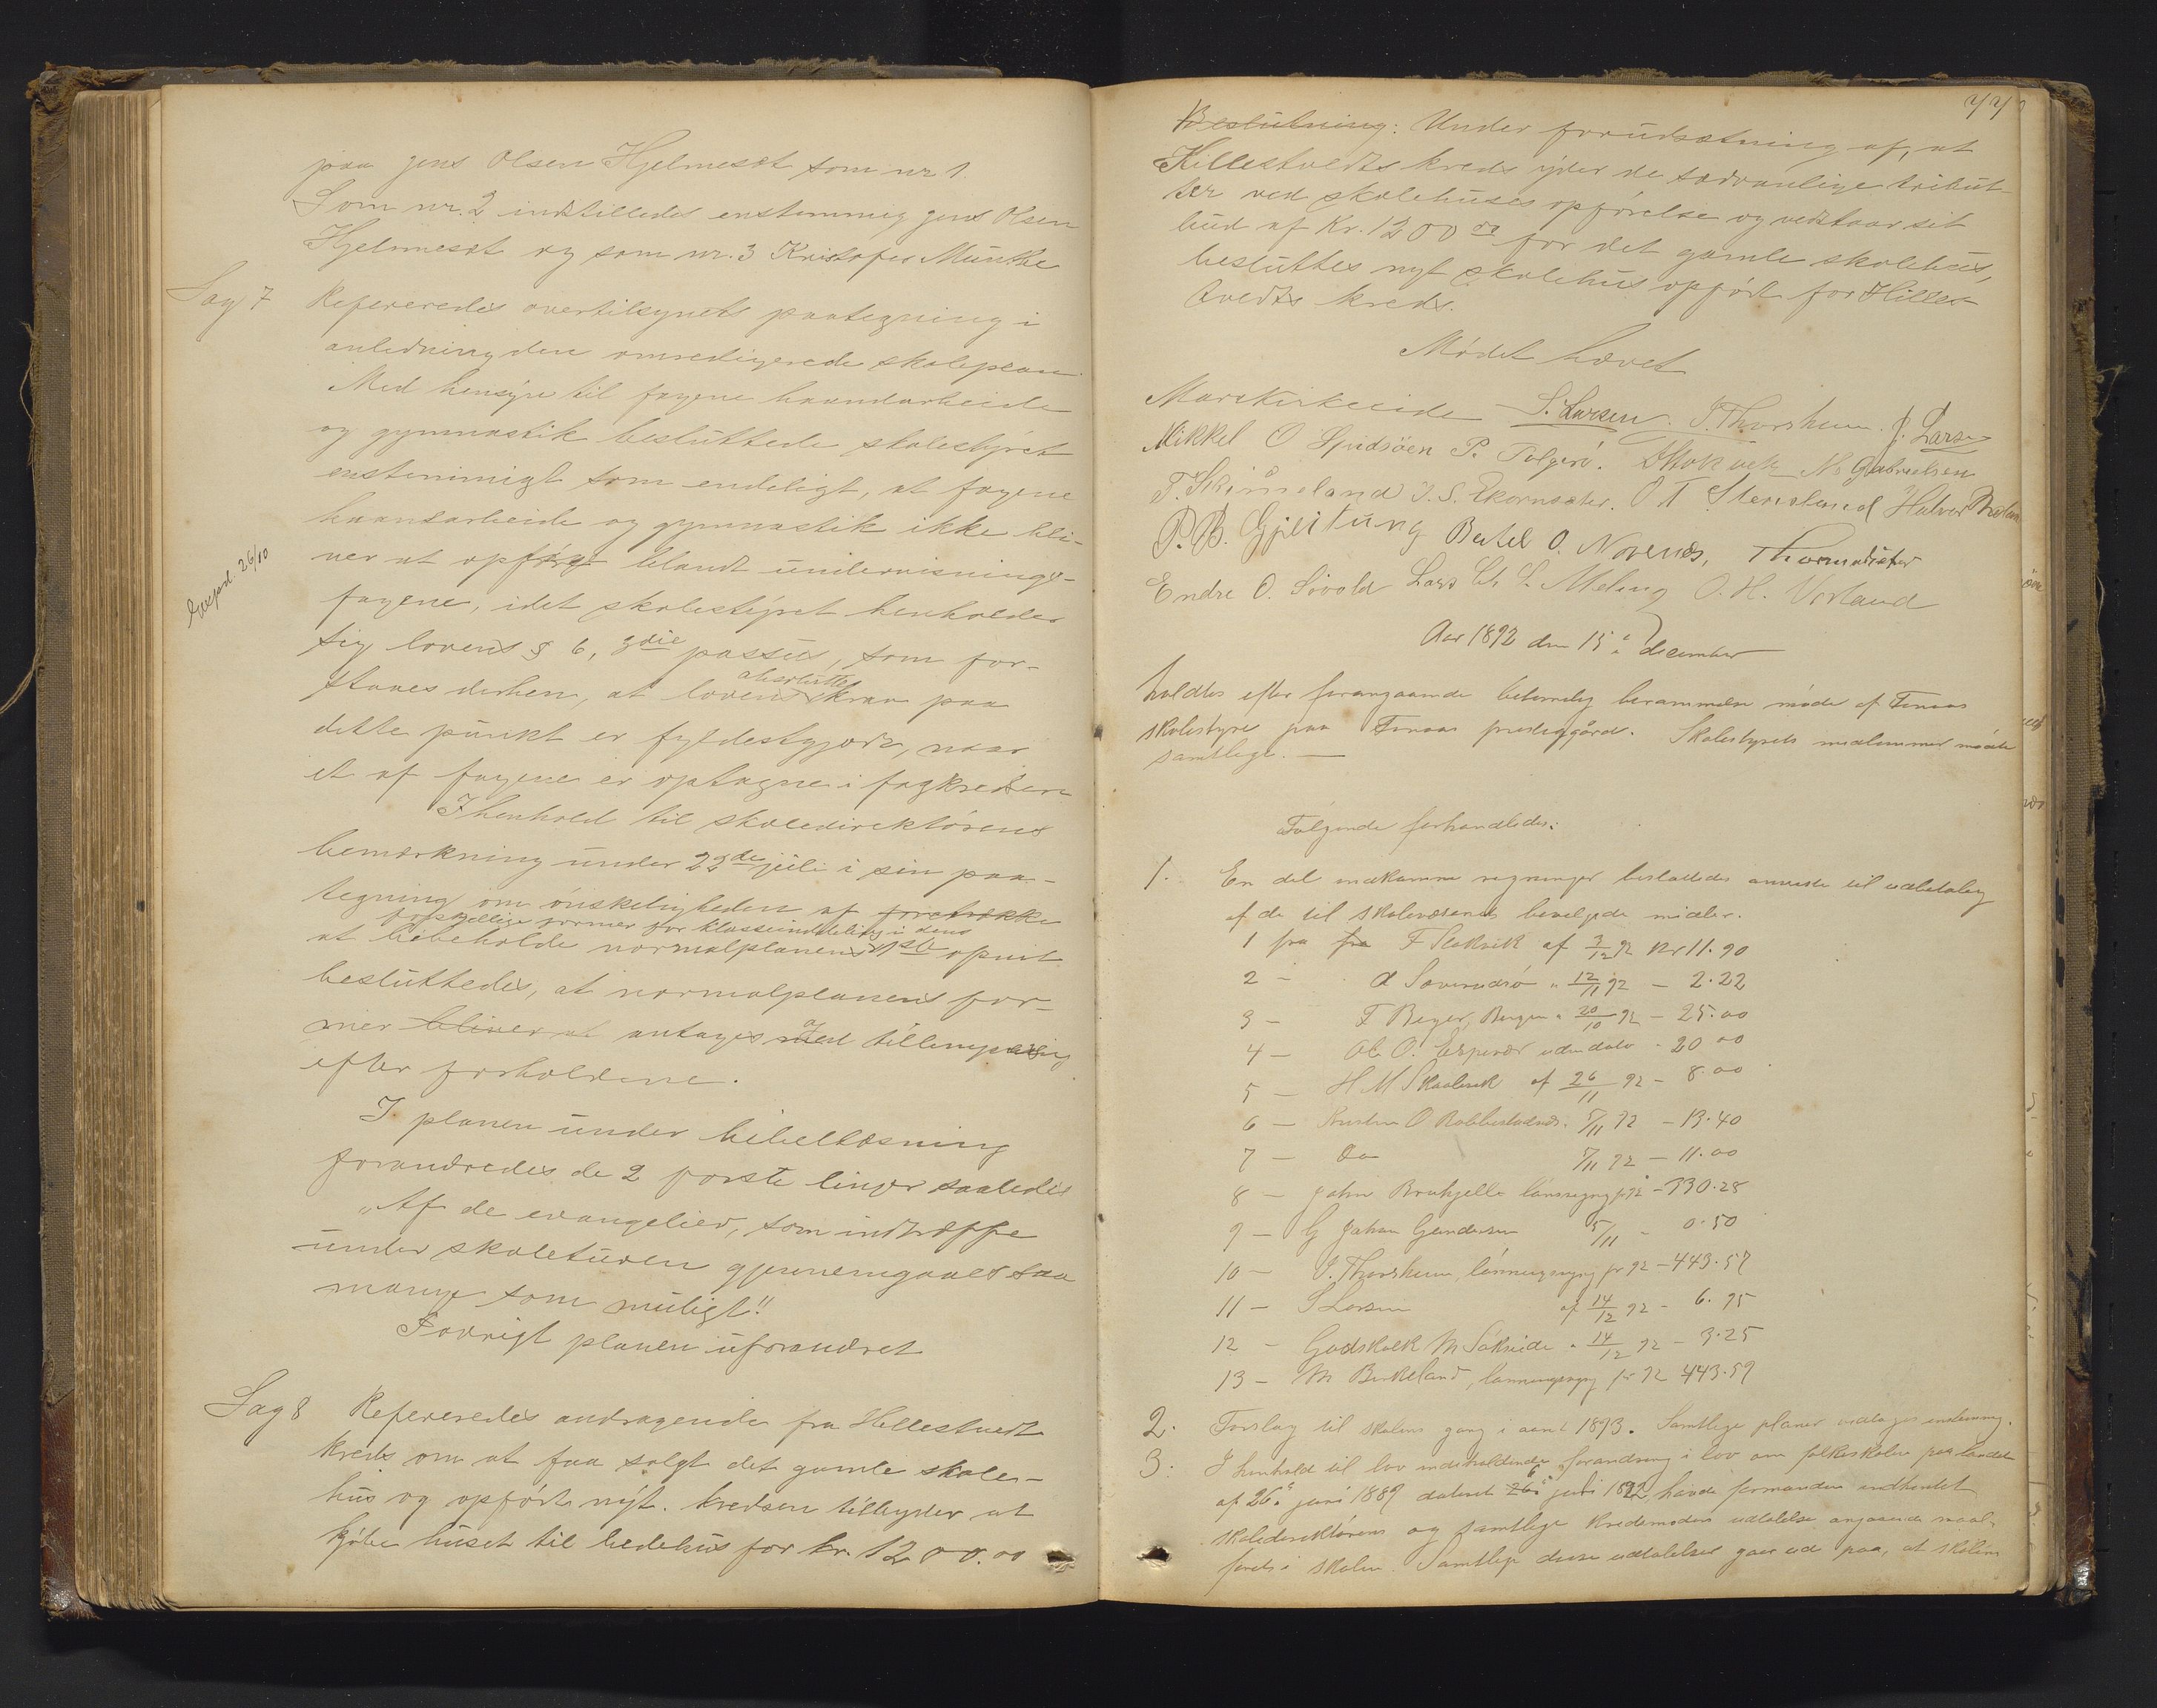 paa Jens Olsen Hjelmeset som nr 1.
Som nr. 2 indstilledes enstemmig Jens Olsen
Hjelmeset og som nr. 3 Kristofer Münthe
Sag 7 Refereredes overtilsynets paategning i
anledning den omredigerede skoleplan.
Med hensyn til fagene haandarbeide
og gymnastik besluttede skolestyret
enstemmigt som endeligt, at fagene
haandarbeide og gymnastik ikke bli-
ver at opføre blandt undervisnings-
Exped. 26/10
fagene, idet skolestyret henholder
sig lovens § 6, 3die passus, som for-
staaes derhen, at lovens absolutte krav paa
dette punkt er fyldestgjort, naar
et af fagene er optagne i fagkredsen
I henhold til skoledirektørens
bemærkning under 22de juli i sin paa-
tegning om ønskeligheden af foretrække
forskjellige former for klasseinddeling i dens
at bibeholde normalplanens 1ste opsæt
besluttedes, at normalplanens for-
mer bliver at antages med tillempning
efter forholdene.
I planen under bibellæsning
forandredes de 2 første linjer saaledes
"Af de evangelier, som indtræffe
under skoleturen gjennemgaaes saa
mange som muligt!!
Forøvrigt planen uforandret
Sag 8 Refereredes andragende fra Hellestvedt
kreds om at faa solgt det gamle skole-
hus og opført nyt. Kredsen tilbyder at
kjøbe huset til bedehus for kr. 1200.00
Beslutning: Under forudsætning af, at
Hellestvedts kreds yder de sædvanlige tribut-
ter ved skolehuses opførelse og vedstaar sit
bud af Kr. 1200 00 for det gamle skolehus,
besluttes nyt skolehus opført for Hilles-
tvedts kreds.
Mødet hævet
S. Larsen. I. Thorsheim. J. Larsen
Mikkel O Spidsöen P. Folgerö. N. Gabrielsen
T. Skimmeland I. S. Ekornsæter. O T Stensland Halvor
P. B. Gjeitung Bertel O. Novenes,
Endre O. Sövold Lars Ch. S. Meling O. H. Vorland
Aar 1892 den 15de december
holdtes efter forangaaende betimelig berammelse møde af Finaas
skolestyre paa Finaas prestegård. Skolestyrets medlemmer mødte
samtlige. —
Følgende forhandledes:
1. En del indkomne regninger besluttedes anviste til udbetaling
af de til skolevæsenet bevilgede midler.
1 fra fra F Stokvik af 3/12 92 Kr 11.90
2 – " 12/11 92 – 2.22
3 – F Beyer, Bergen " 20/10 92 – 25.00
4 – Ole O. Espevær uden dato – 20 00
5 – H M Skaaluvik af 26/11 92 – 8.00
6 – O Robbestadnes. 5/11 92 – 13.40
7 – Do 5/11 92 – 11.00
8 – John Brukjelle lønregng pr 92 – 330.28
9 – G Johan Gundersen 5/11 – 0.50
10 – I. Thorsheim, lønningsregng pr 92 – 443.57
11 – S Larsen af 14/12 92 – 6.95
12 – Godskalk M Søkneide " 14/12 92 – 3.25
13 – M Birkeland, lønningsregng pr 92 443.59
2. Forslag til skolens gang i aaret 1893. Samtlige planer vedtages enstemmig.
3: I henhold til lov indeholdende forandring i lov om folkeskolen paa landet
af 26de juni 1889 dateret 26 6 juli 1892 havde formanden indhentet
skoledirektørens og samtlige kredsmøders udtalelse angaaende maal-
føret i skolen. Samtlige disse udtalelser gaar ud paa, at skolens